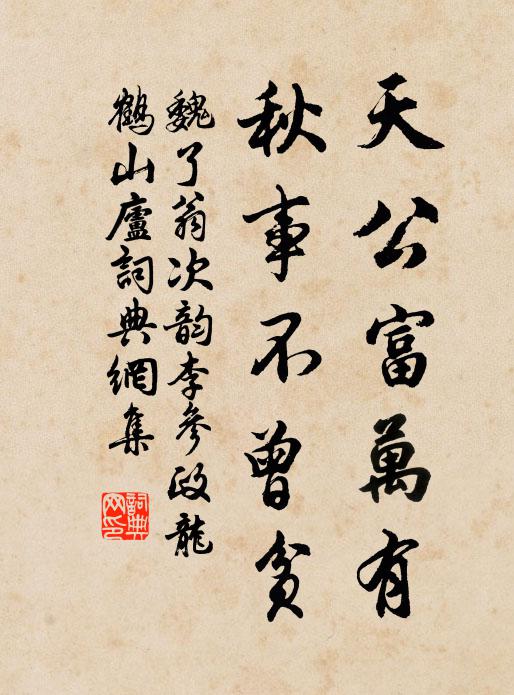 天公富萬有
秋事不曾貧
魏了翁次韵李參政龍
鶴山廬詞典網集
詞典
网印